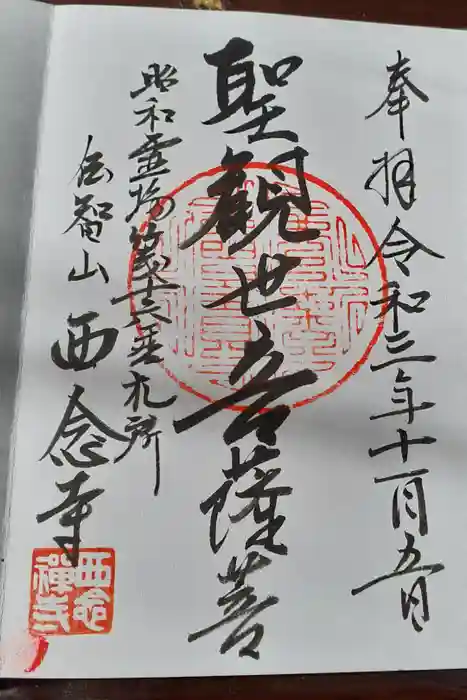 奉拝 令和三年十一月五日
聖觀世音薩菩
昭和霊場第十六番札所
智山 西念寺
西念
禪寺